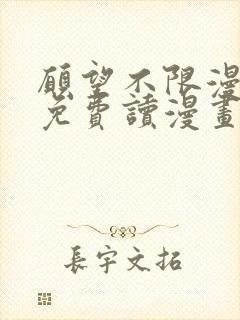 願望不限漫
免費讀漫畫
長宇文拓